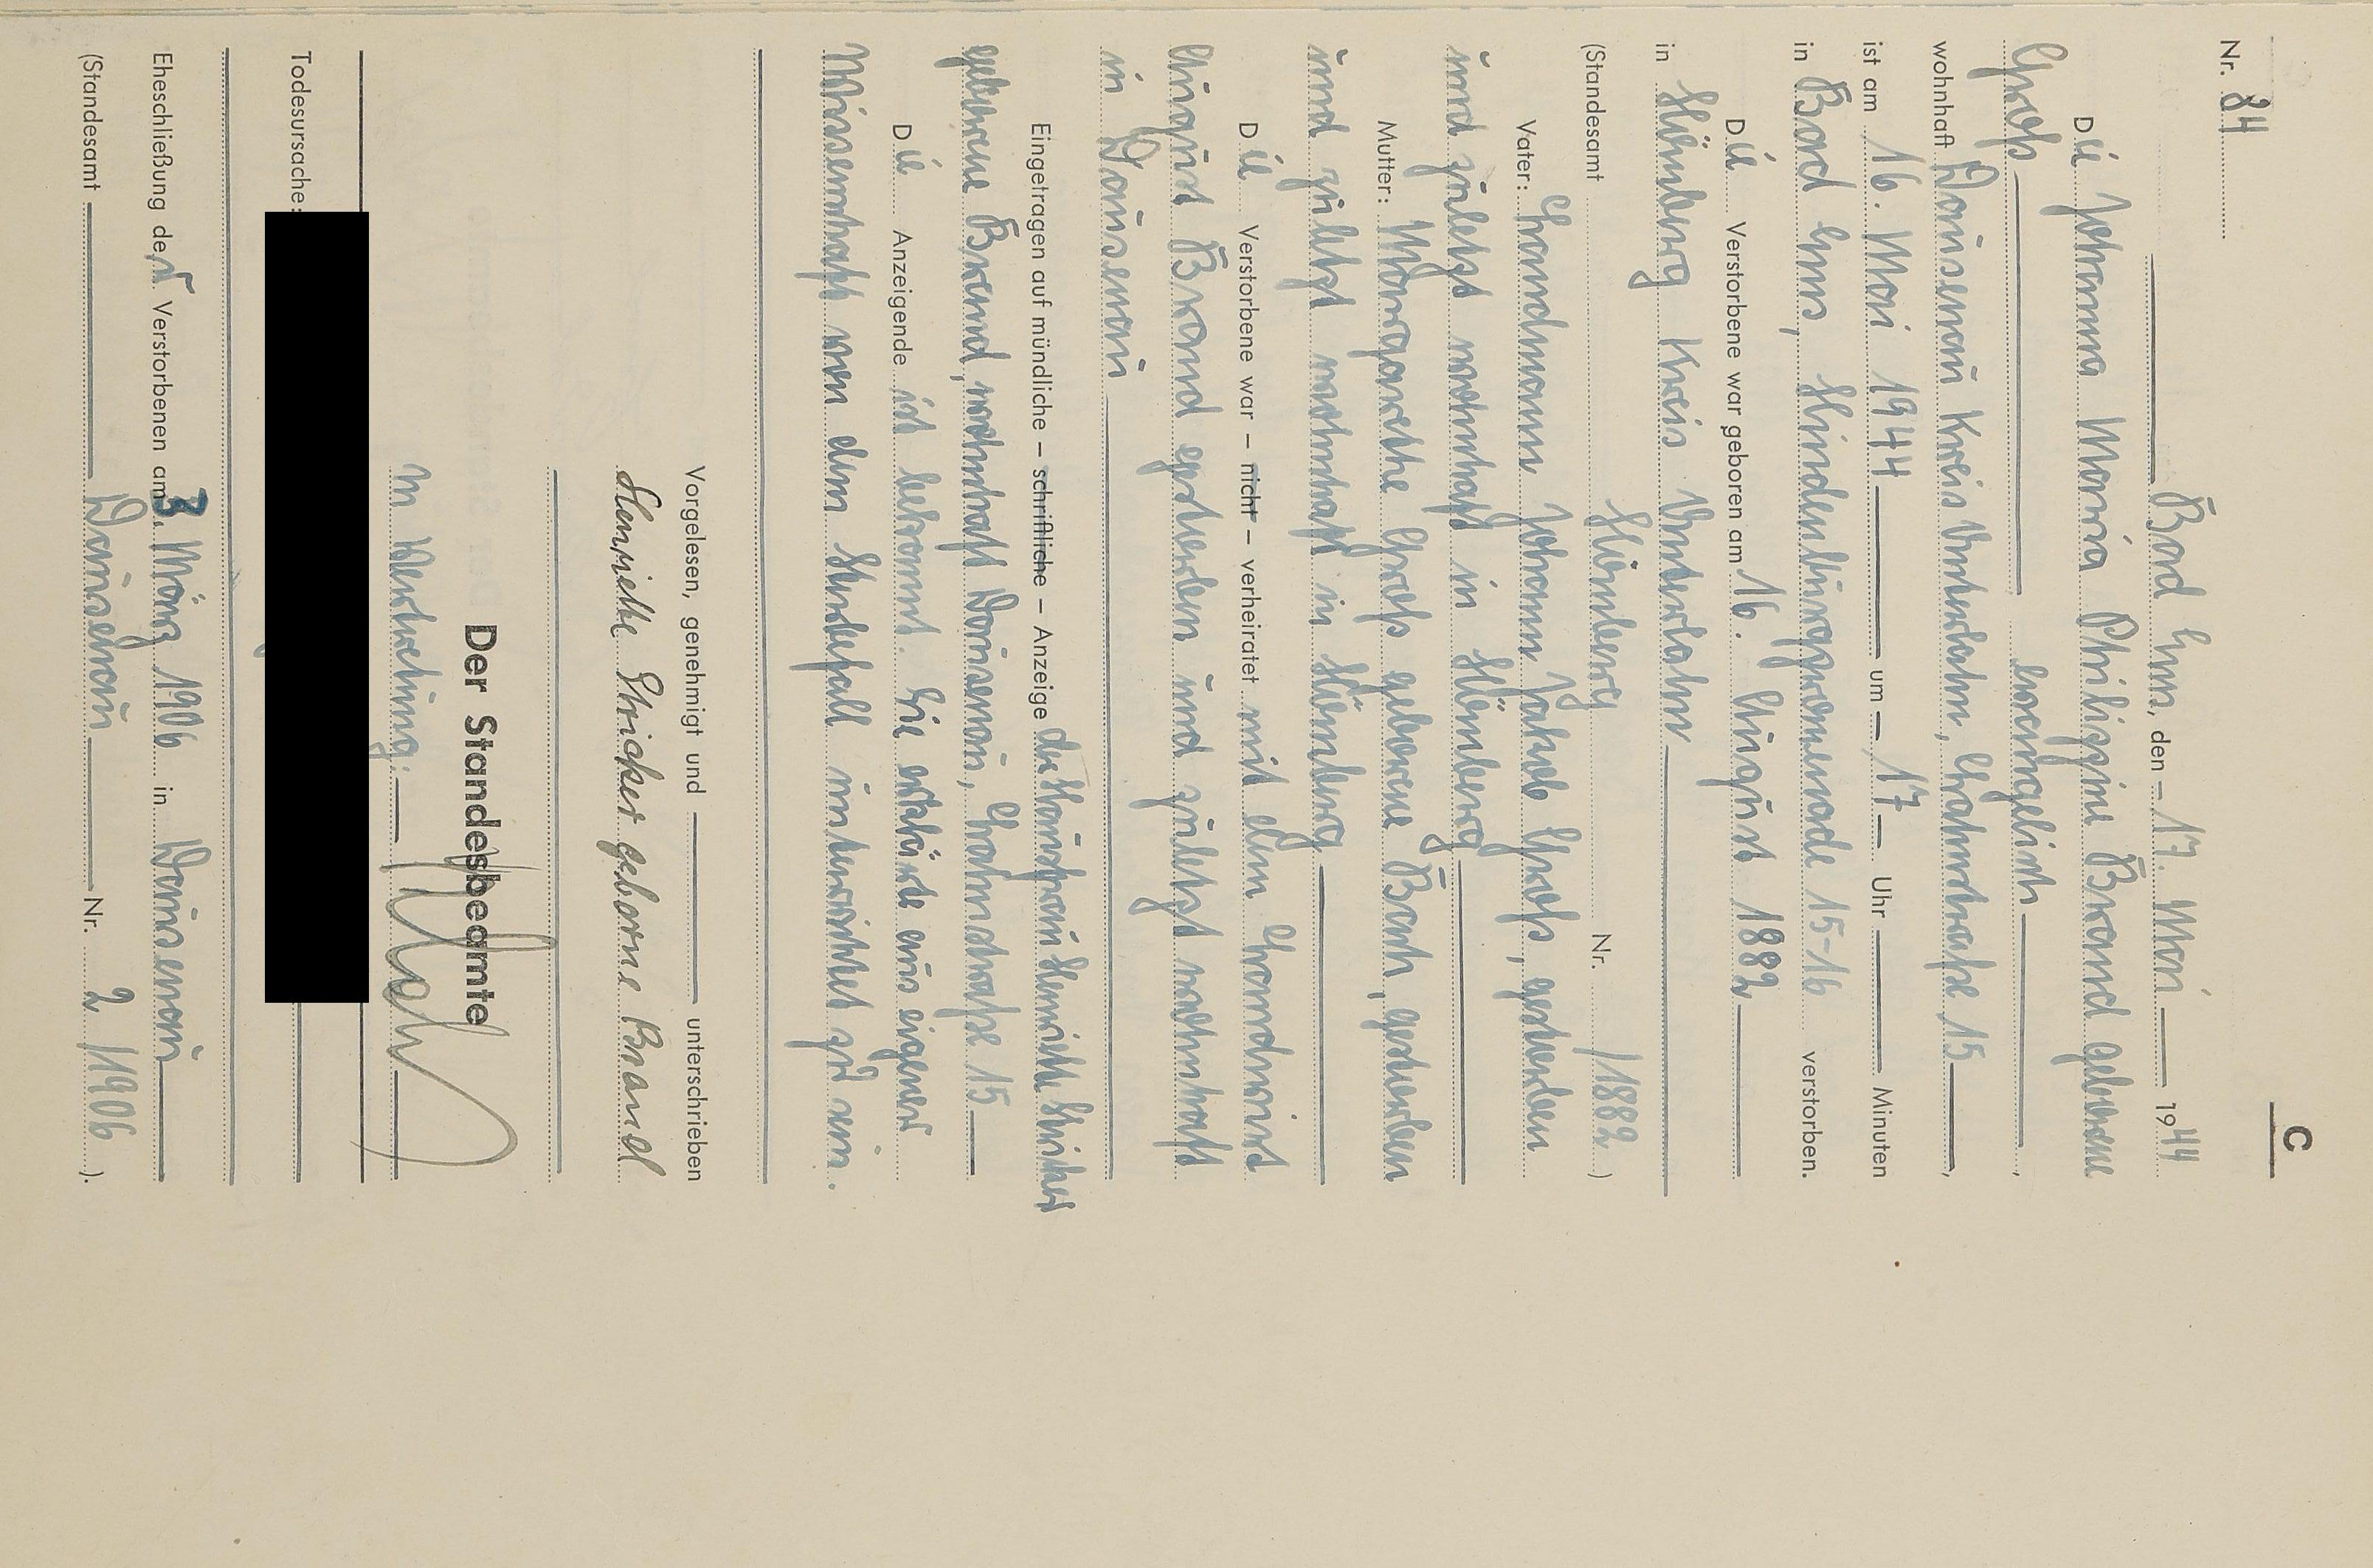 C
Nr. 84
Bad Ems, den 17. Mai 1944
Die Johanna Maria Philippine Brand geborene
Groß evangelisch,
wohnhaft Dausenau Kreis Unterlahn, Lahnstraße 15,
ist am 16. Mai 1944 um 17 Uhr Minuten
in Bad Ems, Hindenburgpromenade 15-16 verstorben.
Die Verstorbene war geboren am 16. August 1882
in Hömberg Kreis Unterlahn
(Standesamt Hömberg Nr. /1882)
Vater: Landmann Johann Jakob Groß, gestorben
und zuletzt wohnhaft in Hömberg
Mutter: Margarethe Groß geborene Bach, gestorben
und zuletzt wohnhaft in Hömberg
Die Verstorbene war – nicht – verheiratet mit dem Landwirt
August Brand gestorben und zuletzt wohnhaft
in Dausenau
Eingetragen auf mündliche – schriftliche – Anzeige der Hausfrau Henriette Stricker
geborene Brand, wohnhaft Dausenau, Lahnstraße 15
Die Anzeigende ist bekannt. Sie erklärte aus eigener
Wissenschaft von dem Sterbefall unterrichtet zu sein.
Vorgelesen, genehmigt und unterschrieben
Henriette Stricker geborne Brand
Der Standesbeamte
In Vertretung:
Todesursache:
Eheschließung der Verstorbenen am 3. März 1906 in Dausenau
(Standesamt Dausenau Nr. 2/1906).